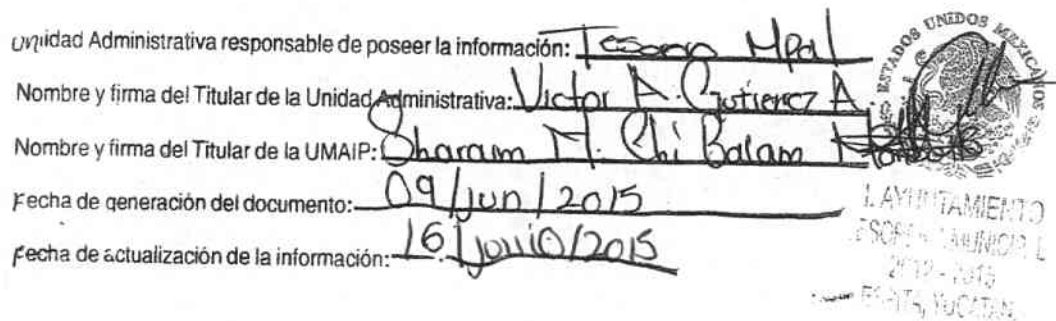 Unidad Administrativa responsable de poseer la información: Tesorero Mpal
Nombre y firma del Titular de la Unidad Administrativa: Victor A. Gutierrez A.
Nombre y firma del Titular de la UMAIP: Sharaim M. Chi Balam
Fecha de generación del documento: 09/jun/2015
Fecha de actualización de la información: 16/junio/2015
ESTADOS UNIDOS MEXICANOS
H. AYUNTAMIENTO
TESORERIA MUNICIPAL
2012 - 2015
YUCATAN